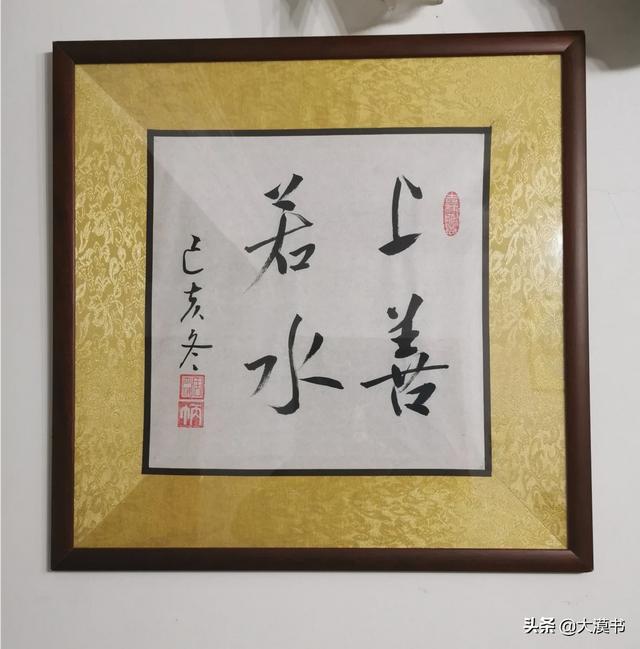 上善
若水
己亥冬
头条 @大漠书